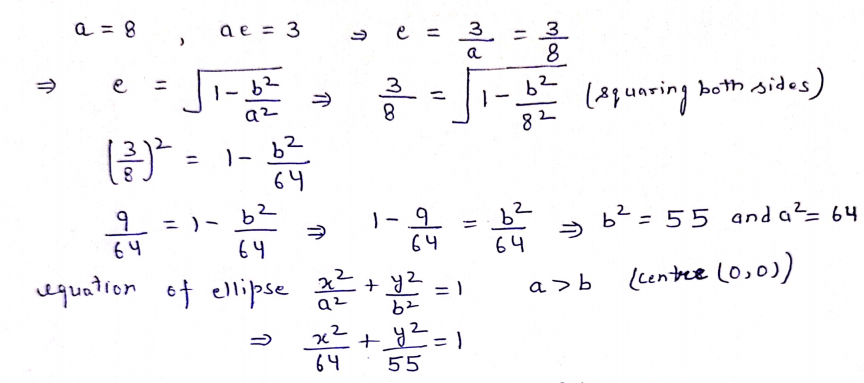 a = 8 , ae = 3 ⇒ e = 3/a = 3/8
⇒ e = √(1 - b²/a²) ⇒ 3/8 = √(1 - b²/8²) (squaring both sides)
(3/8)² = 1 - b²/64
9/64 = 1 - b²/64 ⇒ 1 - 9/64 = b²/64 ⇒ b² = 55 and a² = 64
equation of ellipse x²/a² + y²/b² = 1 a > b (centre (0,0))
⇒ x²/64 + y²/55 = 1